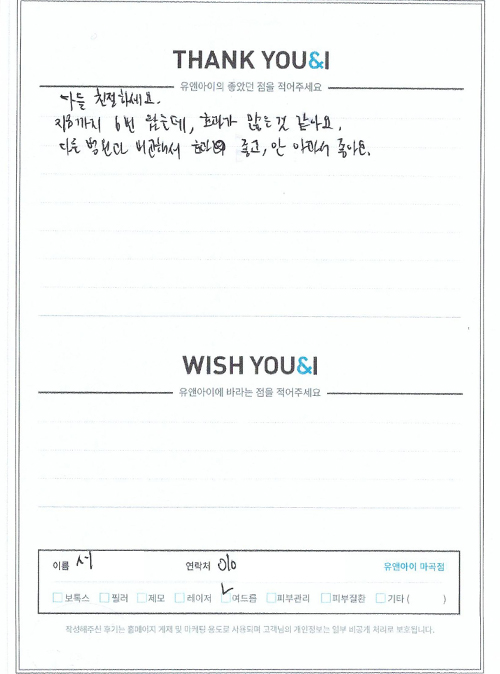 THANK YOU&I
유앤아이의 좋았던 점을 적어주세요
다들 친절하세요.
지금까지 6번 왔는데, 효과가 많은것 같아요.
다른 병원과 비교해서 효과도 좋고, 안 아파서 좋아요.
WISH YOU&I
유앤아이에 바라는 점을 적어주세요
이름 서 연락처 010 유앤아이 마곡점
보톡스 필러 제모 레이저 여드름 피부관리 피부질환 기타 ( )
작성해주신 후기는 홈페이지 게재 및 마케팅 용도로 사용되며 고객님의 개인정보는 일부 비공개 처리로 보호됩니다.